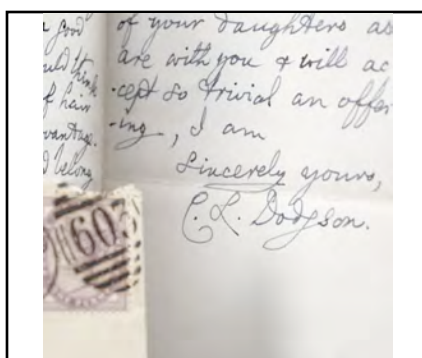 good
of your daughters as
are with you & will ac
-cept so trivial an offer
-ing, I am
Sincerely yours,
C. L. Dodgson.
uld think
f hair
vantage.
d belong
603